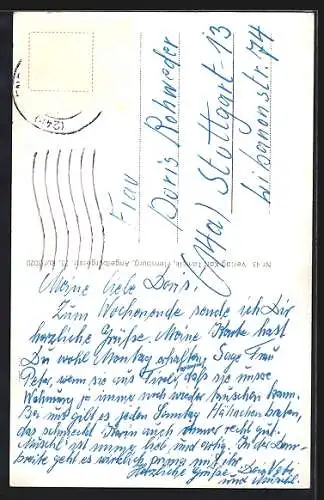 Frau
Doris Rohweder
(14a) Stuttgart-13
Libanonstr. 74
Nr. 43 Verlag Karl Flensburg, Angelburgerstr.
(24b)
Meine liebe Doris!
Zum Wochenende sende ich Dir
herzliche Grüße. Meine Karte hast
Du wohl Montag erhalten. Sage Frau
Peter, wenn sie aus Tirol kommt, daß sie unsre
Wohnung ja immer noch wieder tauschen kann.
Bei mir gibt es jeden Sonntag Hähnchenbraten,
das schmeckt auch immer recht gut.
"Muschi" ist immer lieb und artig. In der
geht es wirklich prima mit ihr.
Herzliche Grüße
und Muschi.